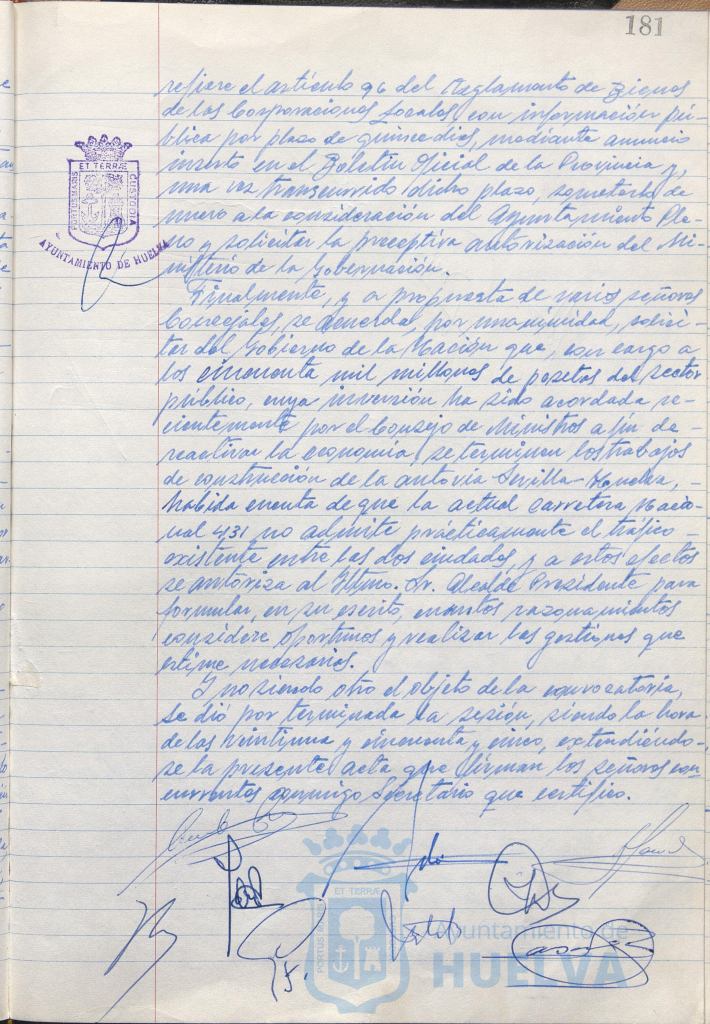 181
refiere el artículo 96 del Reglamento de Bienes
de las Corporaciones Locales, con información pú-
blica por plazo de quince dias, mediante anuncio
inserto en el Boletín Oficial de la Provincia y,
una vez transcurrido dicho plazo, someterlo de
nuevo a la consideración del Ayuntamiento Ple-
no y solicitar la preceptiva autorización del Mi-
nisterio de la Gobernación.
Finalmente, y a propuesta de varios señores
Concejales, se acuerda, por unanimidad, solici-
tar del Gobierno de la Nación que, con cargo a
los cincuenta mil millones de pesetas del sector
público, cuya inversión ha sido acordada re-
cientemente por el Consejo de Ministros a fin de
reactivar la economía, se terminen los trabajos
de construcción de la autovía Sevilla-Huelva, -
habida cuenta de que la actual carretera Nacio-
nal 431 no admite prácticamente el tráfico -
existente entre las dos ciudades, y a estos efectos
se autoriza al Iltmo. Sr. Alcalde Presidente para
formular, en su escrito, cuantos razonamientos
considere oportunos y realizar las gestiones que
estime necesarias.
Y no siendo otro el objeto de la convocatoria,
se dió por terminada la sesión, siendo la hora
de las veintiuna y cincuenta y cinco, extendiéndo-
se la presente acta que firman los señores con-
currentes conmigo Secretario que certifico.
ET TERRÆ
PORTUS MARIS
CUSTODIA
AYUNTAMIENTO DE HUELVA
ET TERRÆ
PORTUS MARIS
Ayuntamiento de
HUELVA